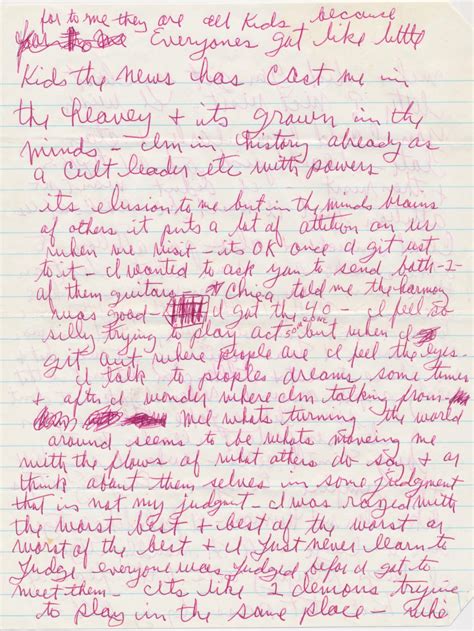 for to me they are all kids because
Everyones got like little
Kids the news has cast me in
the Heavey + its grown in the
minds - Im in history already as
a Cult leader etc with powers
its elusion to me but in the minds brains
of others it puts a lot of attition on us
when we visit - its OK once I git ust
to it - I wanted to ask you to send both -2-
of them guitars - Chica told me the harmony
was good - I got the 40 - I feel so
silly trying to play act but when I
git out where people are I feel the eyes.
I talk to peoples dreams some times
+ after I wonder where Im talking from -
Mel whats turning the world
around seems to be whats moveing me
with the flows of what others do say + or
think about them selves in some judgment
that is not my judgment - I was raized with
the worst best + best of the worst or
worst of the best + I just never learn to
Judge - everyone was judged befor I got to
meet them - Its like 2 demons trying
to play in the same place - like